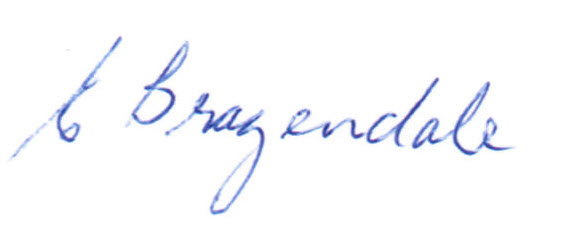 E Brazendale